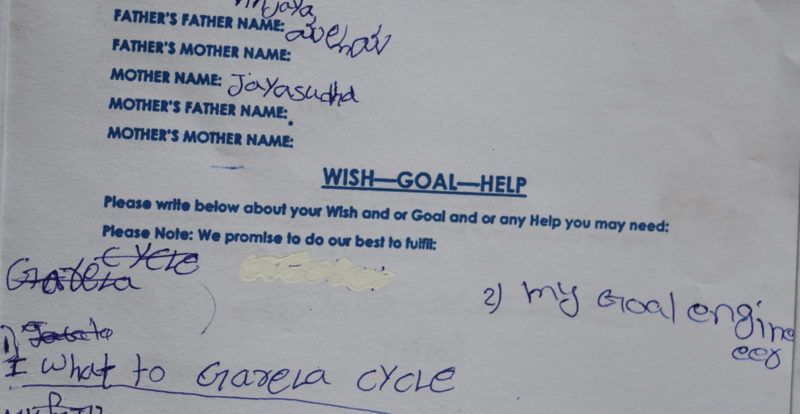 FATHER'S FATHER NAME:
FATHER'S MOTHER NAME:
MOTHER NAME: Jayasudha
MOTHER'S FATHER NAME:
MOTHER'S MOTHER NAME:
WISH—GOAL—HELP
Please write below about your Wish and or Goal and or any Help you may need:
Please Note: We promise to do our best to fulfil:
CYCLE
Garela
2) my Goal engine
eer
1)
I what to Garela CYCLE